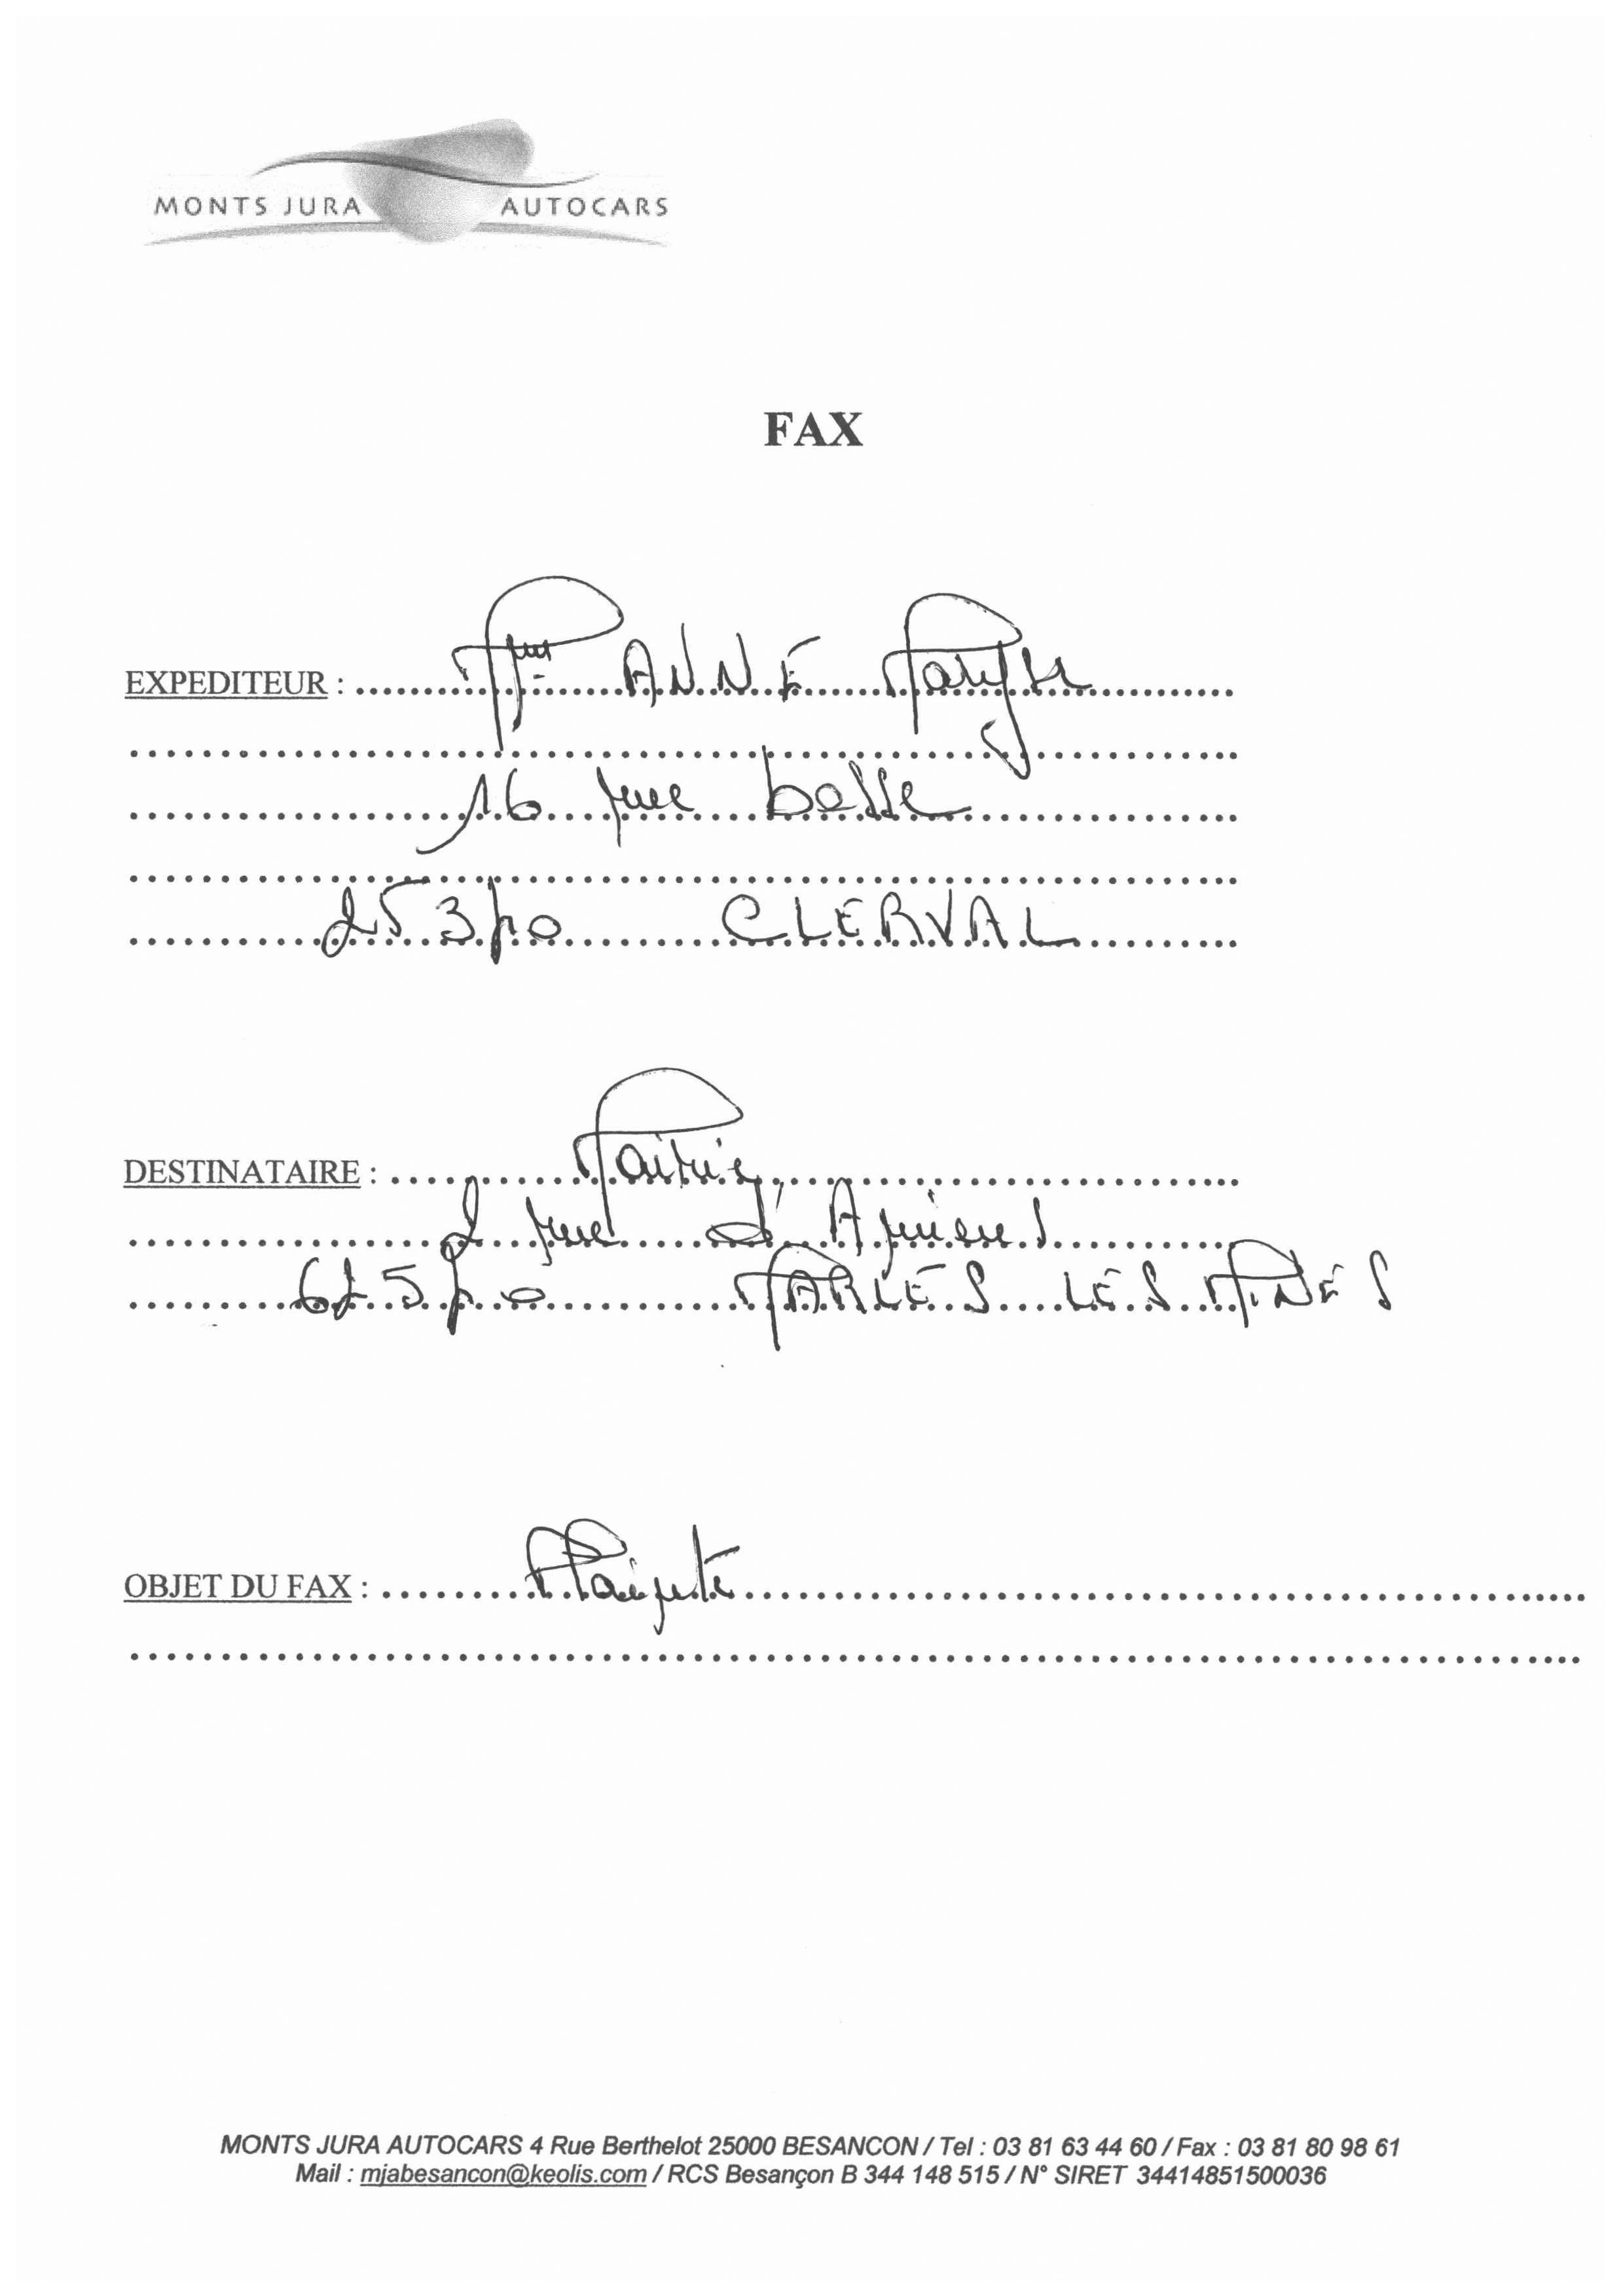 MONTS JURA AUTOCARS
FAX
EXPEDITEUR : Mme ANNE Maryse
16 rue basse
25340 CLERVAL
DESTINATAIRE : Mairie,
2 rue d'Amiens
62540 MARLES LES MINES
OBJET DU FAX : Plainte
MONTS JURA AUTOCARS 4 Rue Berthelot 25000 BESANCON / Tel : 03 81 63 44 60 / Fax : 03 81 80 98 61
Mail : mjabesancon@keolis.com / RCS Besançon B 344 148 515 / N° SIRET 34414851500036